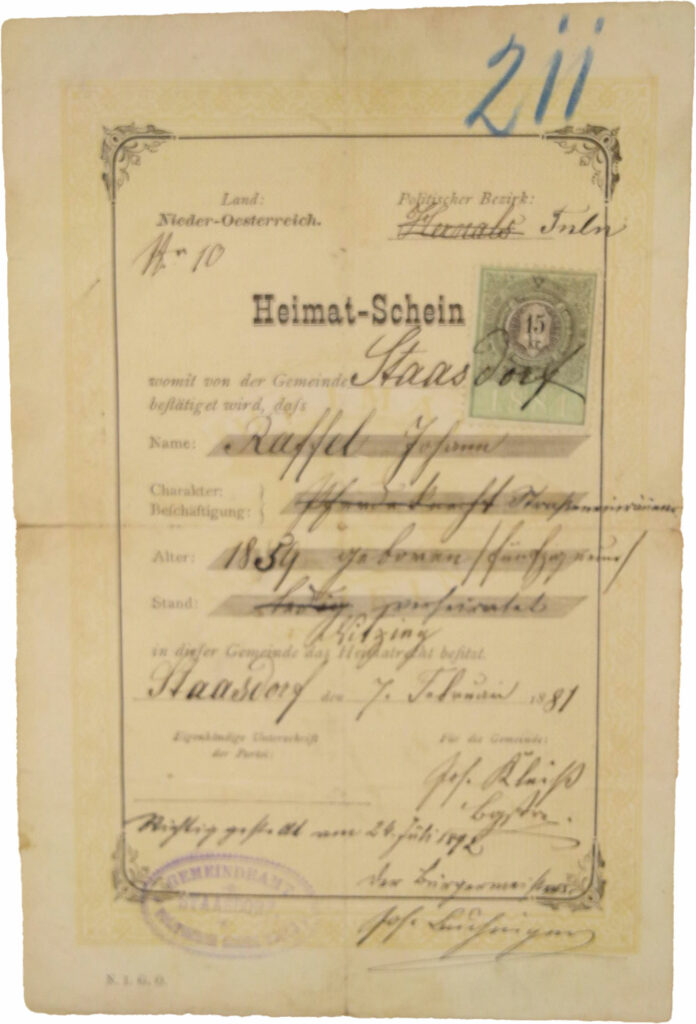 211
Land:
Politischer Bezirk:
Nieder-Oesterreich.
Hernals Tuln
Nr 10
Heimat-Schein
15
kr.
womit von der Gemeinde Staasdorf
bestätiget wird, dass
Name: Raffel Johann
Charakter:
Beschäftigung: Pferdeknecht
Alter: 1859 geboren /fünfzig neun/
Stand: ledig verheiratet
in dieser Gemeinde das Heimatrecht besitzt.
Staasdorf den 7. Februar 1881
Eigenhändige Unterschrift
der Partei:
Für die Gemeinde:
Jos.
Richtig gestellt am 24 Juli 1892
GEMEINDEAMT
STAASDORF
der Bürgermeister
Jos.
N. I. G. O.